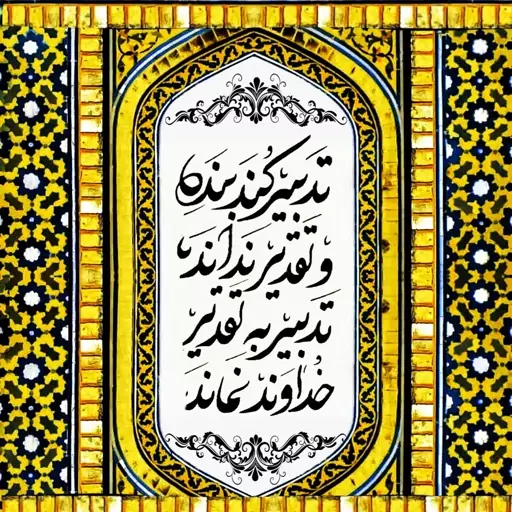 تدبیر کند بنده
و تقدیر نداند
تدبیر به تقدیر
خداوند نماند